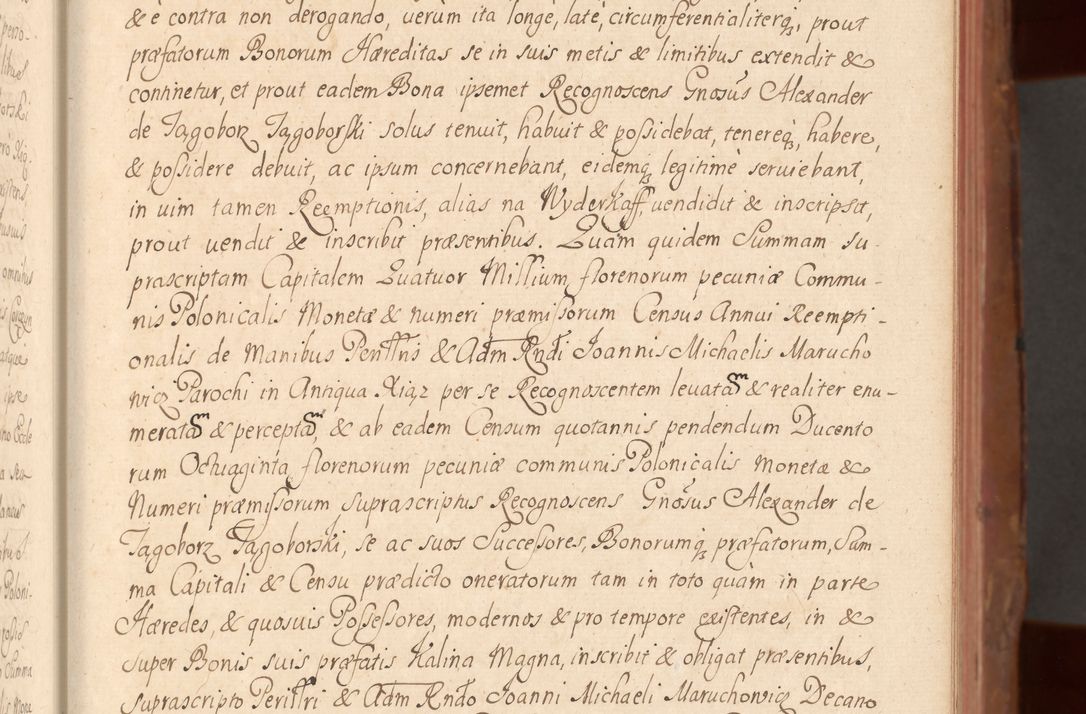 & è contra non derogando, uerùm ita longè, latè, circumferentialiterq3, prout
præfatorum Bonorum Hæreditas se in suis metis & limitibus extendit &
continetur, et prout eadem Bona ipsemet Recognoscens Gnosus Alexander
de Jagoborz Jagoborski solus tenuit, habuit & possidebat, tenereq3, habere,
& possidere debuit, ac ipsum concernebant, eidemq3 legitimè seruiebant,
in uim tamen Reemptionis, alias na Wyderkaff, uendidit & inscripsit,
prout uendit & inscribit præsentibus. Quam quidem Summam su-
prascriptam Capitalem Quatuor Millium florenorum pecuniæ Commu-
nis Polonicalis Monetæ & numeri præmissorum Census Annui Reempti-
onalis de Manibus Perillris & Adm Rndi Joannis Michaelis Marucho
wicz Parochi in Antiqua Xiąz per se Recognoscentem leuatam & realiter enu-
meratam & perceptam, & ab eadem Censum quotannis pendendum Ducento
rum Octuaginta florenorum pecuniæ communis Polonicalis Monetæ &
Numeri præmissorum suprascriptus Recognoscens Gnosus Alexander de
Jagoborz Jagoborski, se ac suos Successores, Bonorumq3 præfatorum, Sum-
ma Capitali & Censu prædicto oneratorum tam in toto quàm in parte
Hæredes, & quosuis Possessores, modernos & pro tempore existentes, in &
super Bonis suis præfatis Kalina Magna, inscribit & obligat præsentibus,
suprascripto Perillri & Adm Rndo Joanni Michaeli Maruchowicz Decano